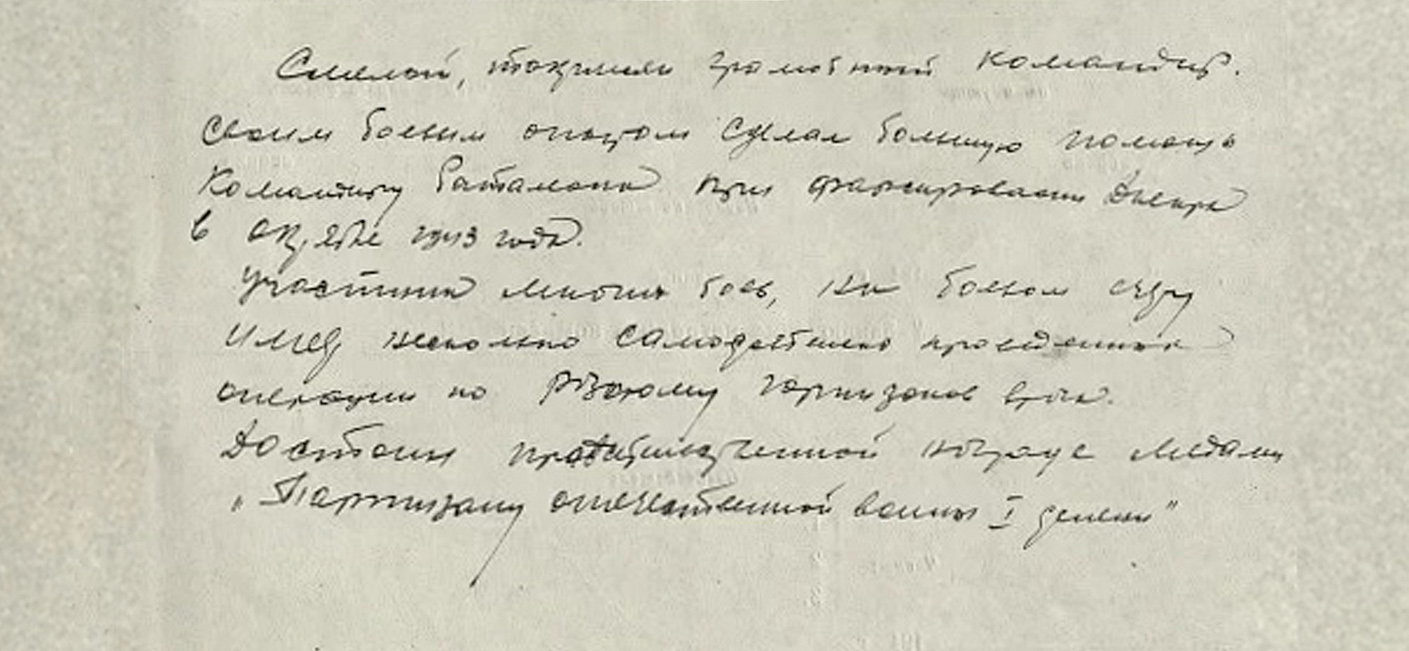 Смелой, тактически грамотный командир.
Своим боевым опытом сделал большую помощь
командиру баталиона при форсировании Днепра
в октябре 1943 года.
Участник многих боев, на боевом счету
имеет несколько самостоятельно проведенных
операции по разгрому гарнизонов врага.
Достоин правительственной награде медали
„Партизану отечественной войны I степени"